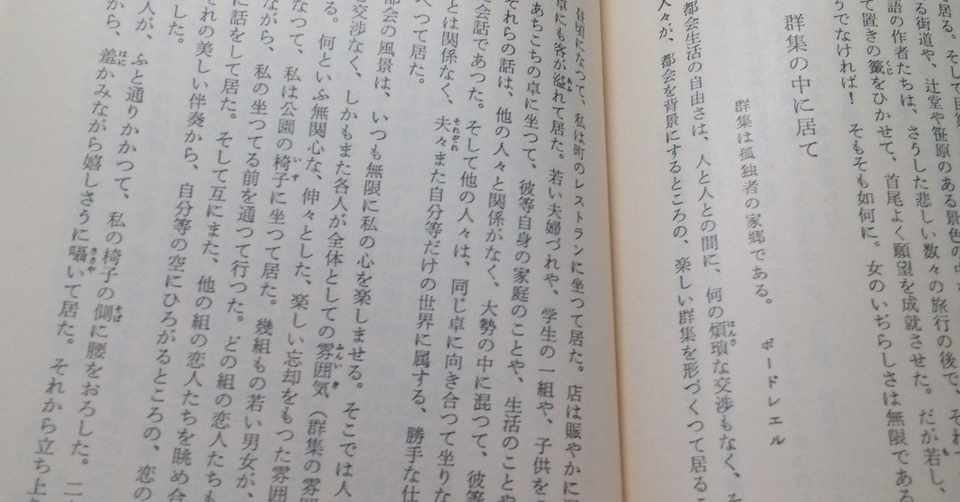 居る。そして目
る街道や、辻堂や笹原のある景色の中
語の作者たちは、さうした悲しい数々の旅行の後で、それ
て置きの籤をひかせて、首尾よく願望を成就させた。だが若し、
うでなければ！　そもそも如何に。女のいぢらしさは無限であ
群集の中に居て
群集は孤独者の家郷である。　ボードレエル
都会生活の自由さは、人と人との間に、何の煩瑣な交渉もなく、そ
人々が、都会を背景にするところの、楽しい群集を形づくつて居るこ
昼頃になつて、私は町のレストランに坐つて居た。店は賑やかに
卓にも客が溢れて居た。若い夫婦づれや、学生の一組や、子供を
あちこちの卓に坐つて、彼等自身の家庭のことや、生活のことや
それらの話は、他の人々と関係がなく、大勢の中に混つて、彼等
会話であつた。そして他の人々は、同じ卓に向き合つて坐りな
とは関係なく、夫々また自分等だけの世界に属する、勝手な仕
べつて居た。
都会の風景は、いつも無限に私の心を楽しませる。そこでは人
交渉なく、しかもまた各人が全体としての雰囲気（群集の雰囲
る。何といふ無関心な、伸々とした、楽しい忘却をもつた雰囲
なつて、私は公園の椅子に坐つて居た。幾組もの若い男女が、
ながら、私の坐つてる前を通つて行つた。どの組の恋人たちも
に話をして居た。そして互にまた、他の組の恋人たちを眺め合
それの美しい伴奏から、自分等の空にひろがるところの、恋の
した。
人が、ふと通りかかつて、私の椅子の側に腰をおろした。二
から、羞かみながら嬉しさうに囁いて居た。それから立ち上